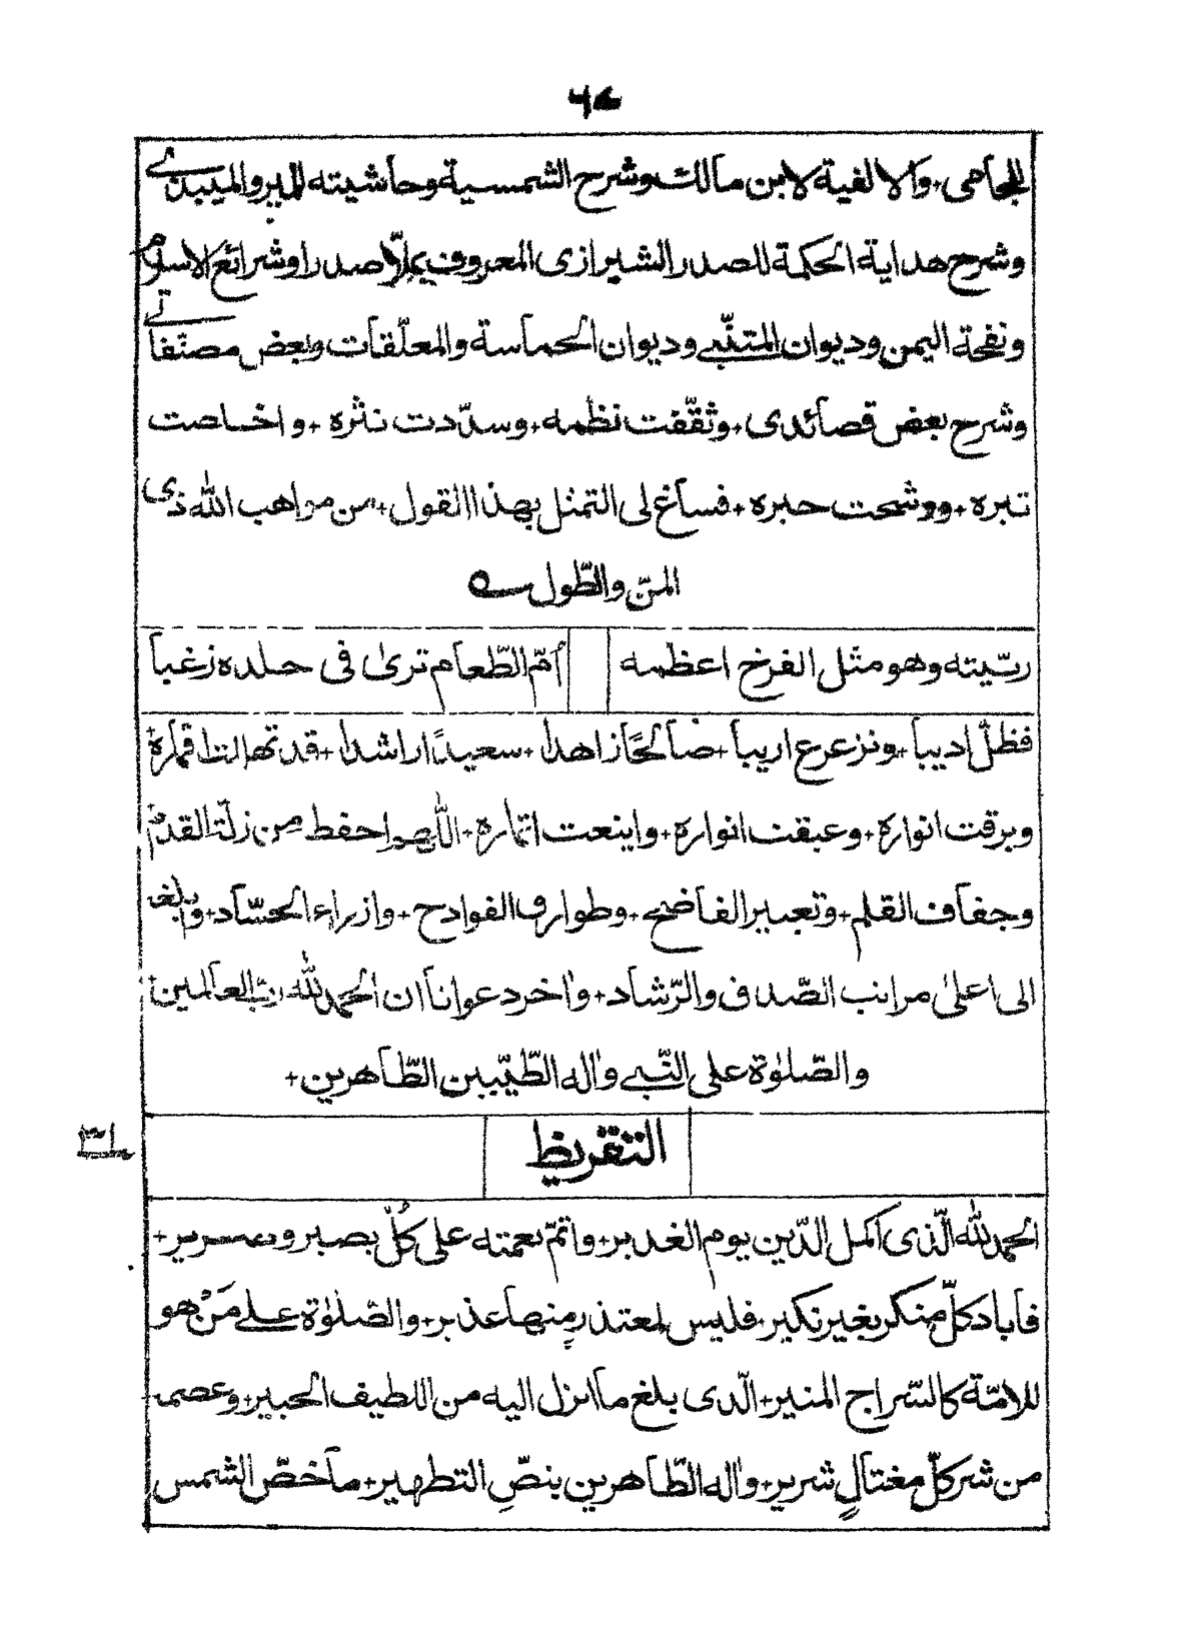 ۴۶
للجامی+والالفیة لابن مالك وشرح الشمسیة وحاشیته للمیر والمیبذی
وشرح هدایة الحکمة للصدر الشیرازی المعروف بملّا صدرا وشرائع الاسلام
ونفحة الیمن ودیوان المتنبّی ودیوان الحماسة والمعلّقات وبعض مصنّفاتی
وشرح بعض قصائدی+وثقّفت نظمه+وسدّدت نثره+واخلصت
تبره+ووشحت حبره+فساغ لی التمثل بهذا القول+من مواهب الله ذی
المنّ والطّول
ربّیته وهو مثل الفرخ اعظمه    اُمّ الطّعام تریٰ فی جلده زغبا
فظلّ ادیبا+وترعرع اریبا+صالحًا زاهدا+سعیدًا راشدا+قد تهالت اقماره+
وبرقت انواره+وعبقت انواره+واینعت اثماره+اللّهم احفظ من زلّة القدم+
وجفاف القلم+وتعبیر الفاضح+وطوارق الفوادح+وازراء الحسّاد+وبلغه
الی اعلیٰ مراتب الصّدق والرّشاد+واٰخر دعوانا ان الحمد لله ربّ العالمین+
والصّلوٰة علی النّبی واٰله الطّیّبین الطّاهرین+
التقریظ
۳۱
الحمد لله الّذی اکمل الدّین یوم الغدیر+واتمّ نعمته علی کُلّ بصیر وضریر+
فاباد کلّ منکر بغیر نکیر+فلیس لمعتذر منهما عذیر+والصّلوٰة علی مَنْ هو
للامّة کالسّراج المنیر+الّذی بلغ ما انزل الیه من اللطیف الخبیر+وعصم
من شر کلّ مغتالٍ شریر+واٰله الطّاهرین بنصِّ التطهیر+ما خصّ الشمس